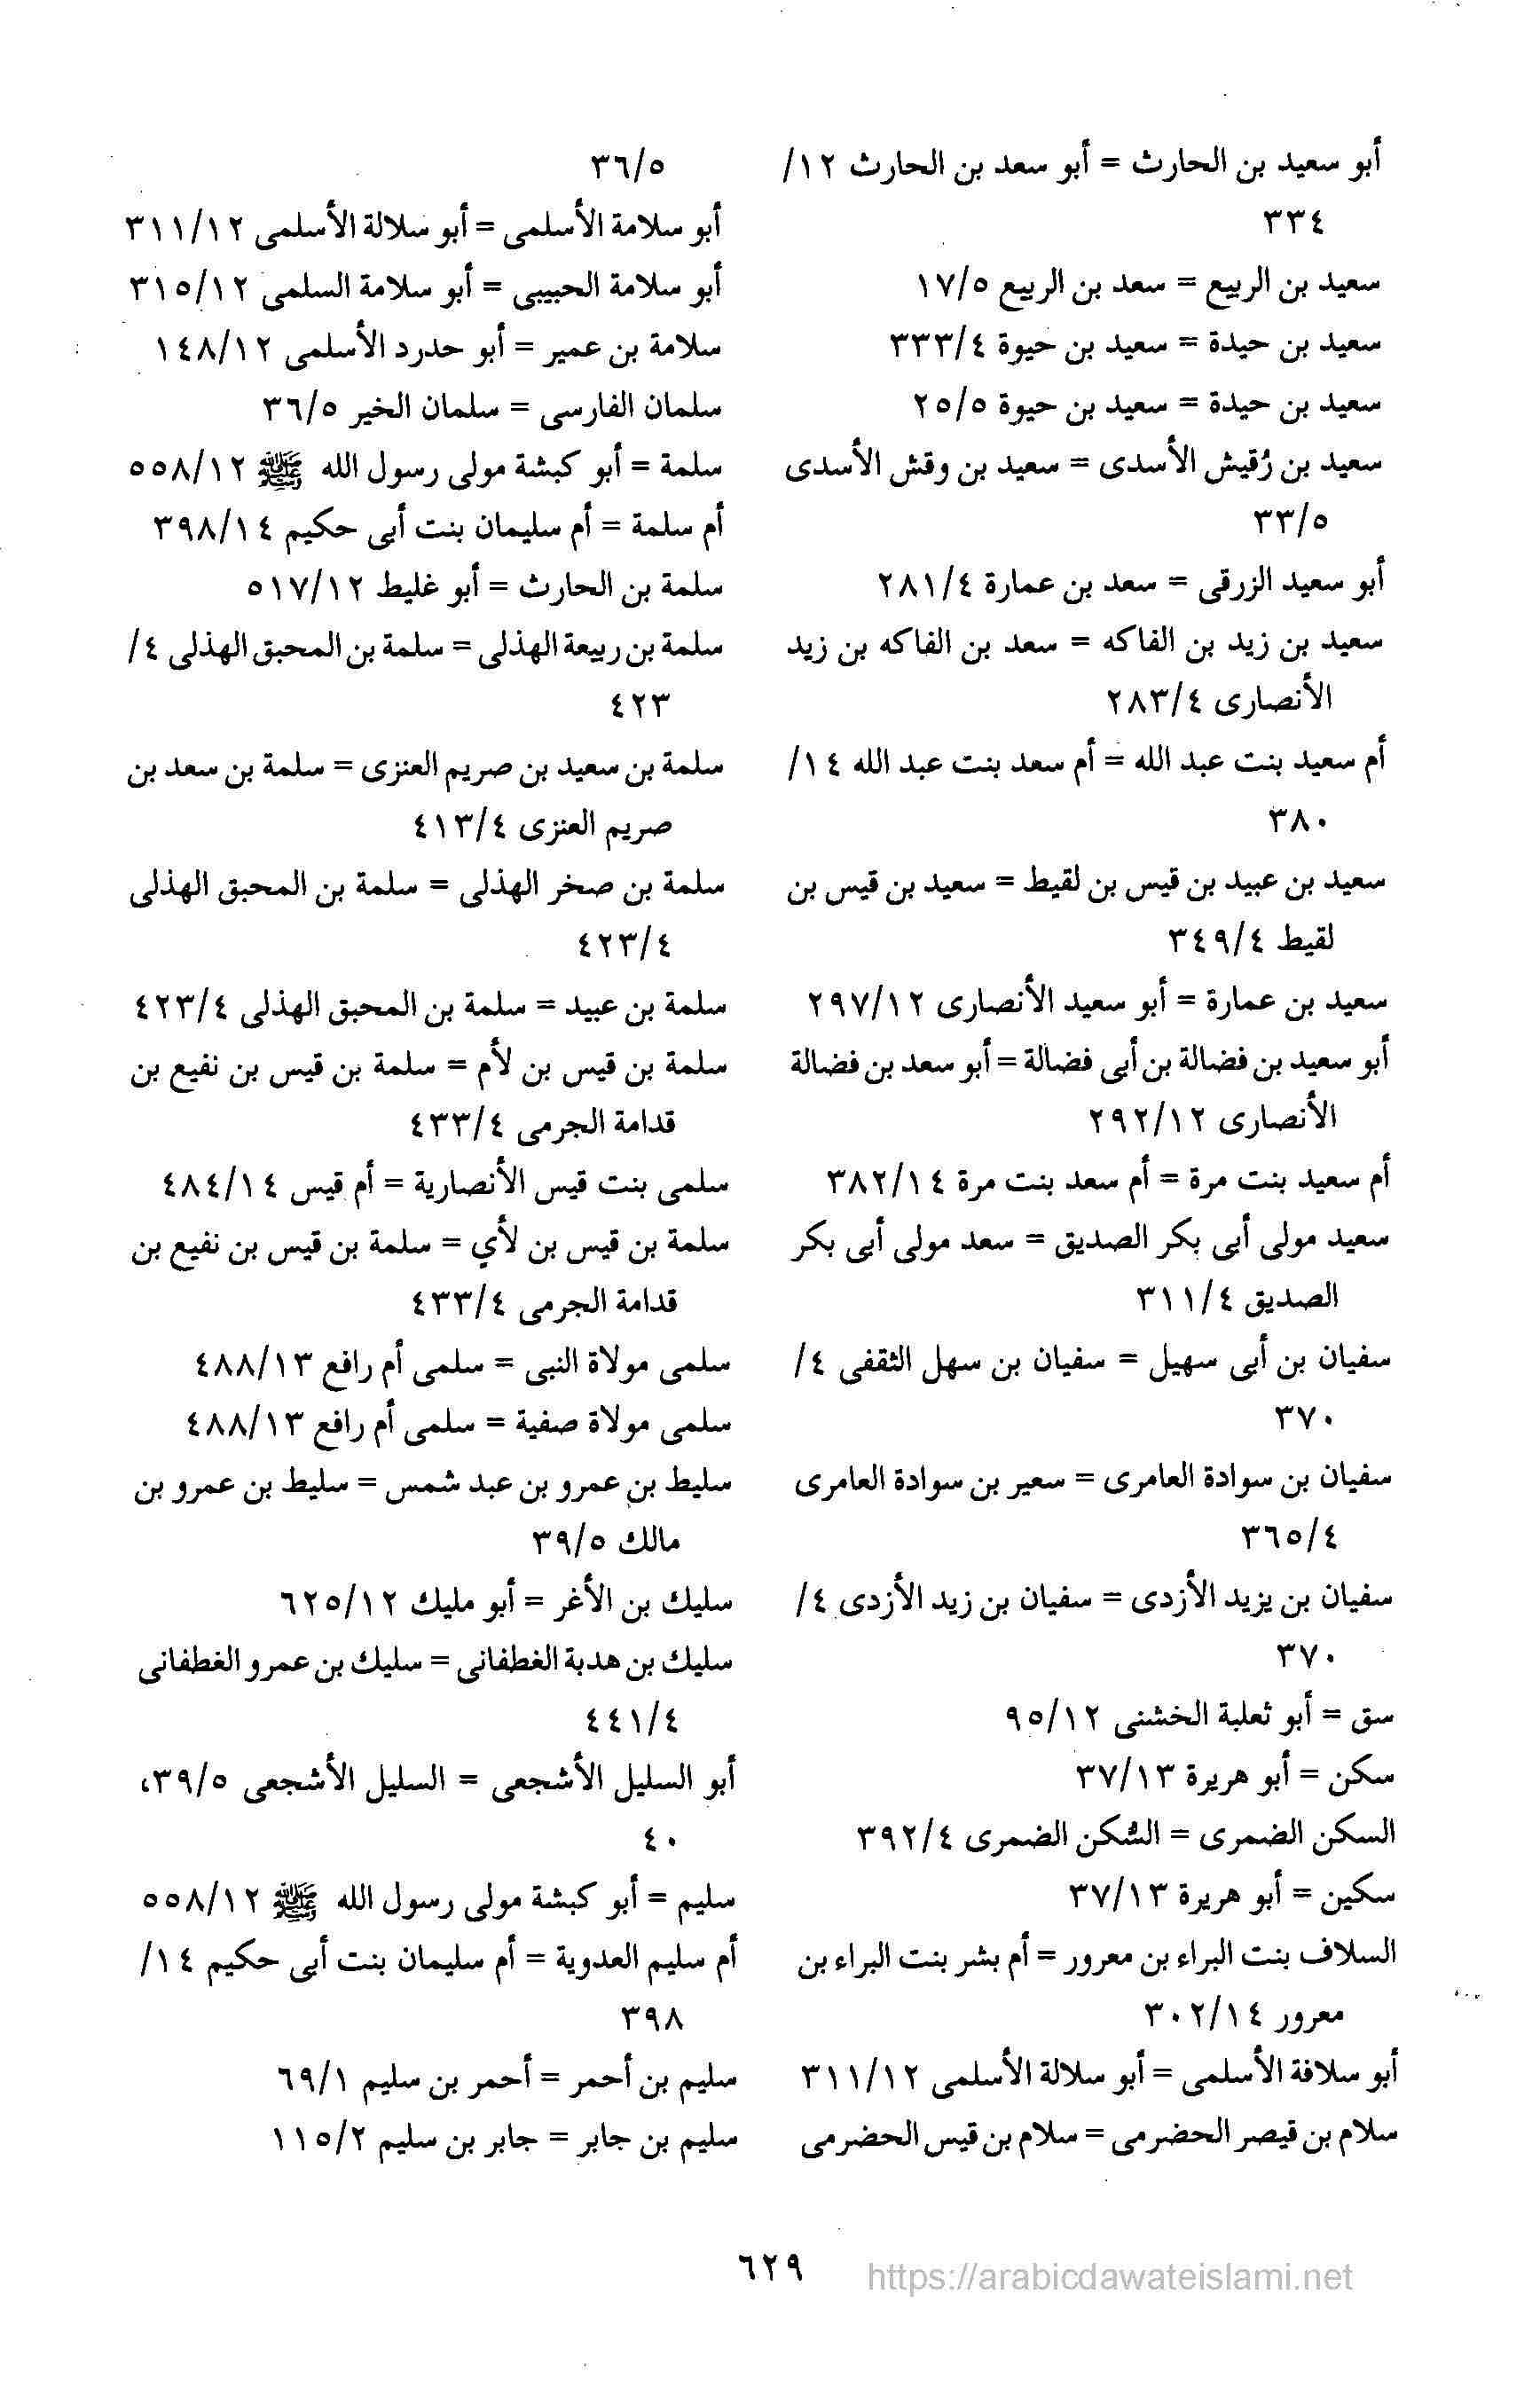 أبو سعيد بن الحارث = أبو سعد بن الحارث ١٢/
٣٣٤
سعيد بن الربيع = سعد بن الربيع ١٧/٥
سعيد بن حيدة = سعيد بن حيوة ٣٣٣/٤
سعيد بن حيدة = سعيد بن حيوة ٢٥/٥
سعيد بن رُقيش الأسدى = سعيد بن وقش الأسدى
٣٣/٥
أبو سعيد الزرقى = سعد بن عمارة ٢٨١/٤
سعيد بن زيد بن الفاكه = سعد بن الفاكه بن زيد
الأنصارى ٢٨٣/٤
أم سعيد بنت عبد الله = أم سعد بنت عبد الله ١٤/
٣٨٠
سعيد بن عبيد بن قيس بن لقيط = سعيد بن قيس بن
لقيط ٣٤٩/٤
سعيد بن عمارة = أبو سعيد الأنصارى ٢٩٧/١٢
أبو سعيد بن فضالة بن أبى فضالة = أبو سعد بن فضالة
الأنصارى ٢٩٢/١٢
أم سعيد بنت مرة = أم سعد بنت مرة ٣٨٢/١٤
سعيد مولى أبى بكر الصديق = سعد مولى أبى بكر
الصديق ٣١١/٤
سفيان بن أبى سهيل = سفيان بن سهل الثقفى ٤/
٣٧٠
سفيان بن سوادة العامرى = سعير بن سوادة العامرى
٣٦٥/٤
سفيان بن يزيد الأزدى = سفيان بن زيد الأزدى ٤/
٣٧٠
سق = أبو ثعلبة الخشنى ٩٥/١٢
سكن = أبو هريرة ٣٧/١٣
السكن الضمرى = السُّكن الضمرى ٣٩٢/٤
سكين = أبو هريرة ٣٧/١٣
السلاف بنت البراء بن معرور = أم بشر بنت البراء بن
معرور ٣٠٢/١٤
أبو سلافة الأسلمى = أبو سلالة الأسلمى ٣١١/١٢
سلام بن قيصر الحضرمى = سلام بن قيس الحضرمى
٣٦/٥
أبو سلامة الأسلمى = أبو سلالة الأسلمى ٣١١/١٢
أبو سلامة الحبيبى = أبو سلامة السلمى ٣١٥/١٢
سلامة بن عمير = أبو حدرد الأسلمى ١٤٨/١٢
سلمان الفارسى = سلمان الخير ٣٦/٥
سلمة = أبو كبشة مولى رسول الله ﷺ ٥٥٨/١٢
أم سلمة = أم سليمان بنت أبى حكيم ٣٩٨/١٤
سلمة بن الحارث = أبو غليط ٥١٧/١٢
سلمة بن ربيعة الهذلى = سلمة بن المحبق الهذلى ٤/
٤٢٣
سلمة بن سعيد بن صريم العنزى = سلمة بن سعد بن
صريم العنزى ٤١٣/٤
سلمة بن صخر الهذلى = سلمة بن المحبق الهذلى
٤٢٣/٤
سلمة بن عبيد = سلمة بن المحبق الهذلى ٤٢٣/٤
سلمة بن قيس بن لأم = سلمة بن قيس بن نفيع بن
قدامة الجرمى ٤٣٣/٤
سلمى بنت قيس الأنصارية = أم قيس ٤٨٤/١٤
سلمة بن قيس بن لأي = سلمة بن قيس بن نفيع بن
قدامة الجرمى ٤٣٣/٤
سلمى مولاة النبى = سلمى أم رافع ٤٨٨/١٣
سلمى مولاة صفية = سلمى أم رافع ٤٨٨/١٣
سليط بن عمرو بن عبد شمس = سليط بن عمرو بن
مالك ٣٩/٥
سليك بن الأغر = أبو مليك ٦٢٥/١٢
سليك بن هدبة الغطفانى = سليك بن عمرو الغطفانى
٤٤١/٤
أبو السليل الأشجعى = السليل الأشجعى ٣٩/٥،
٤٠
سليم = أبو كبشة مولى رسول الله ﷺ ٥٥٨/١٢
أم سليم العدوية = أم سليمان بنت أبى حكيم ١٤/
٣٩٨
سليم بن أحمر = أحمر بن سليم ٦٩/١
سليم بن جابر = جابر بن سليم ١١٥/٢
٦٢٩
https://arabicdawateislami.net